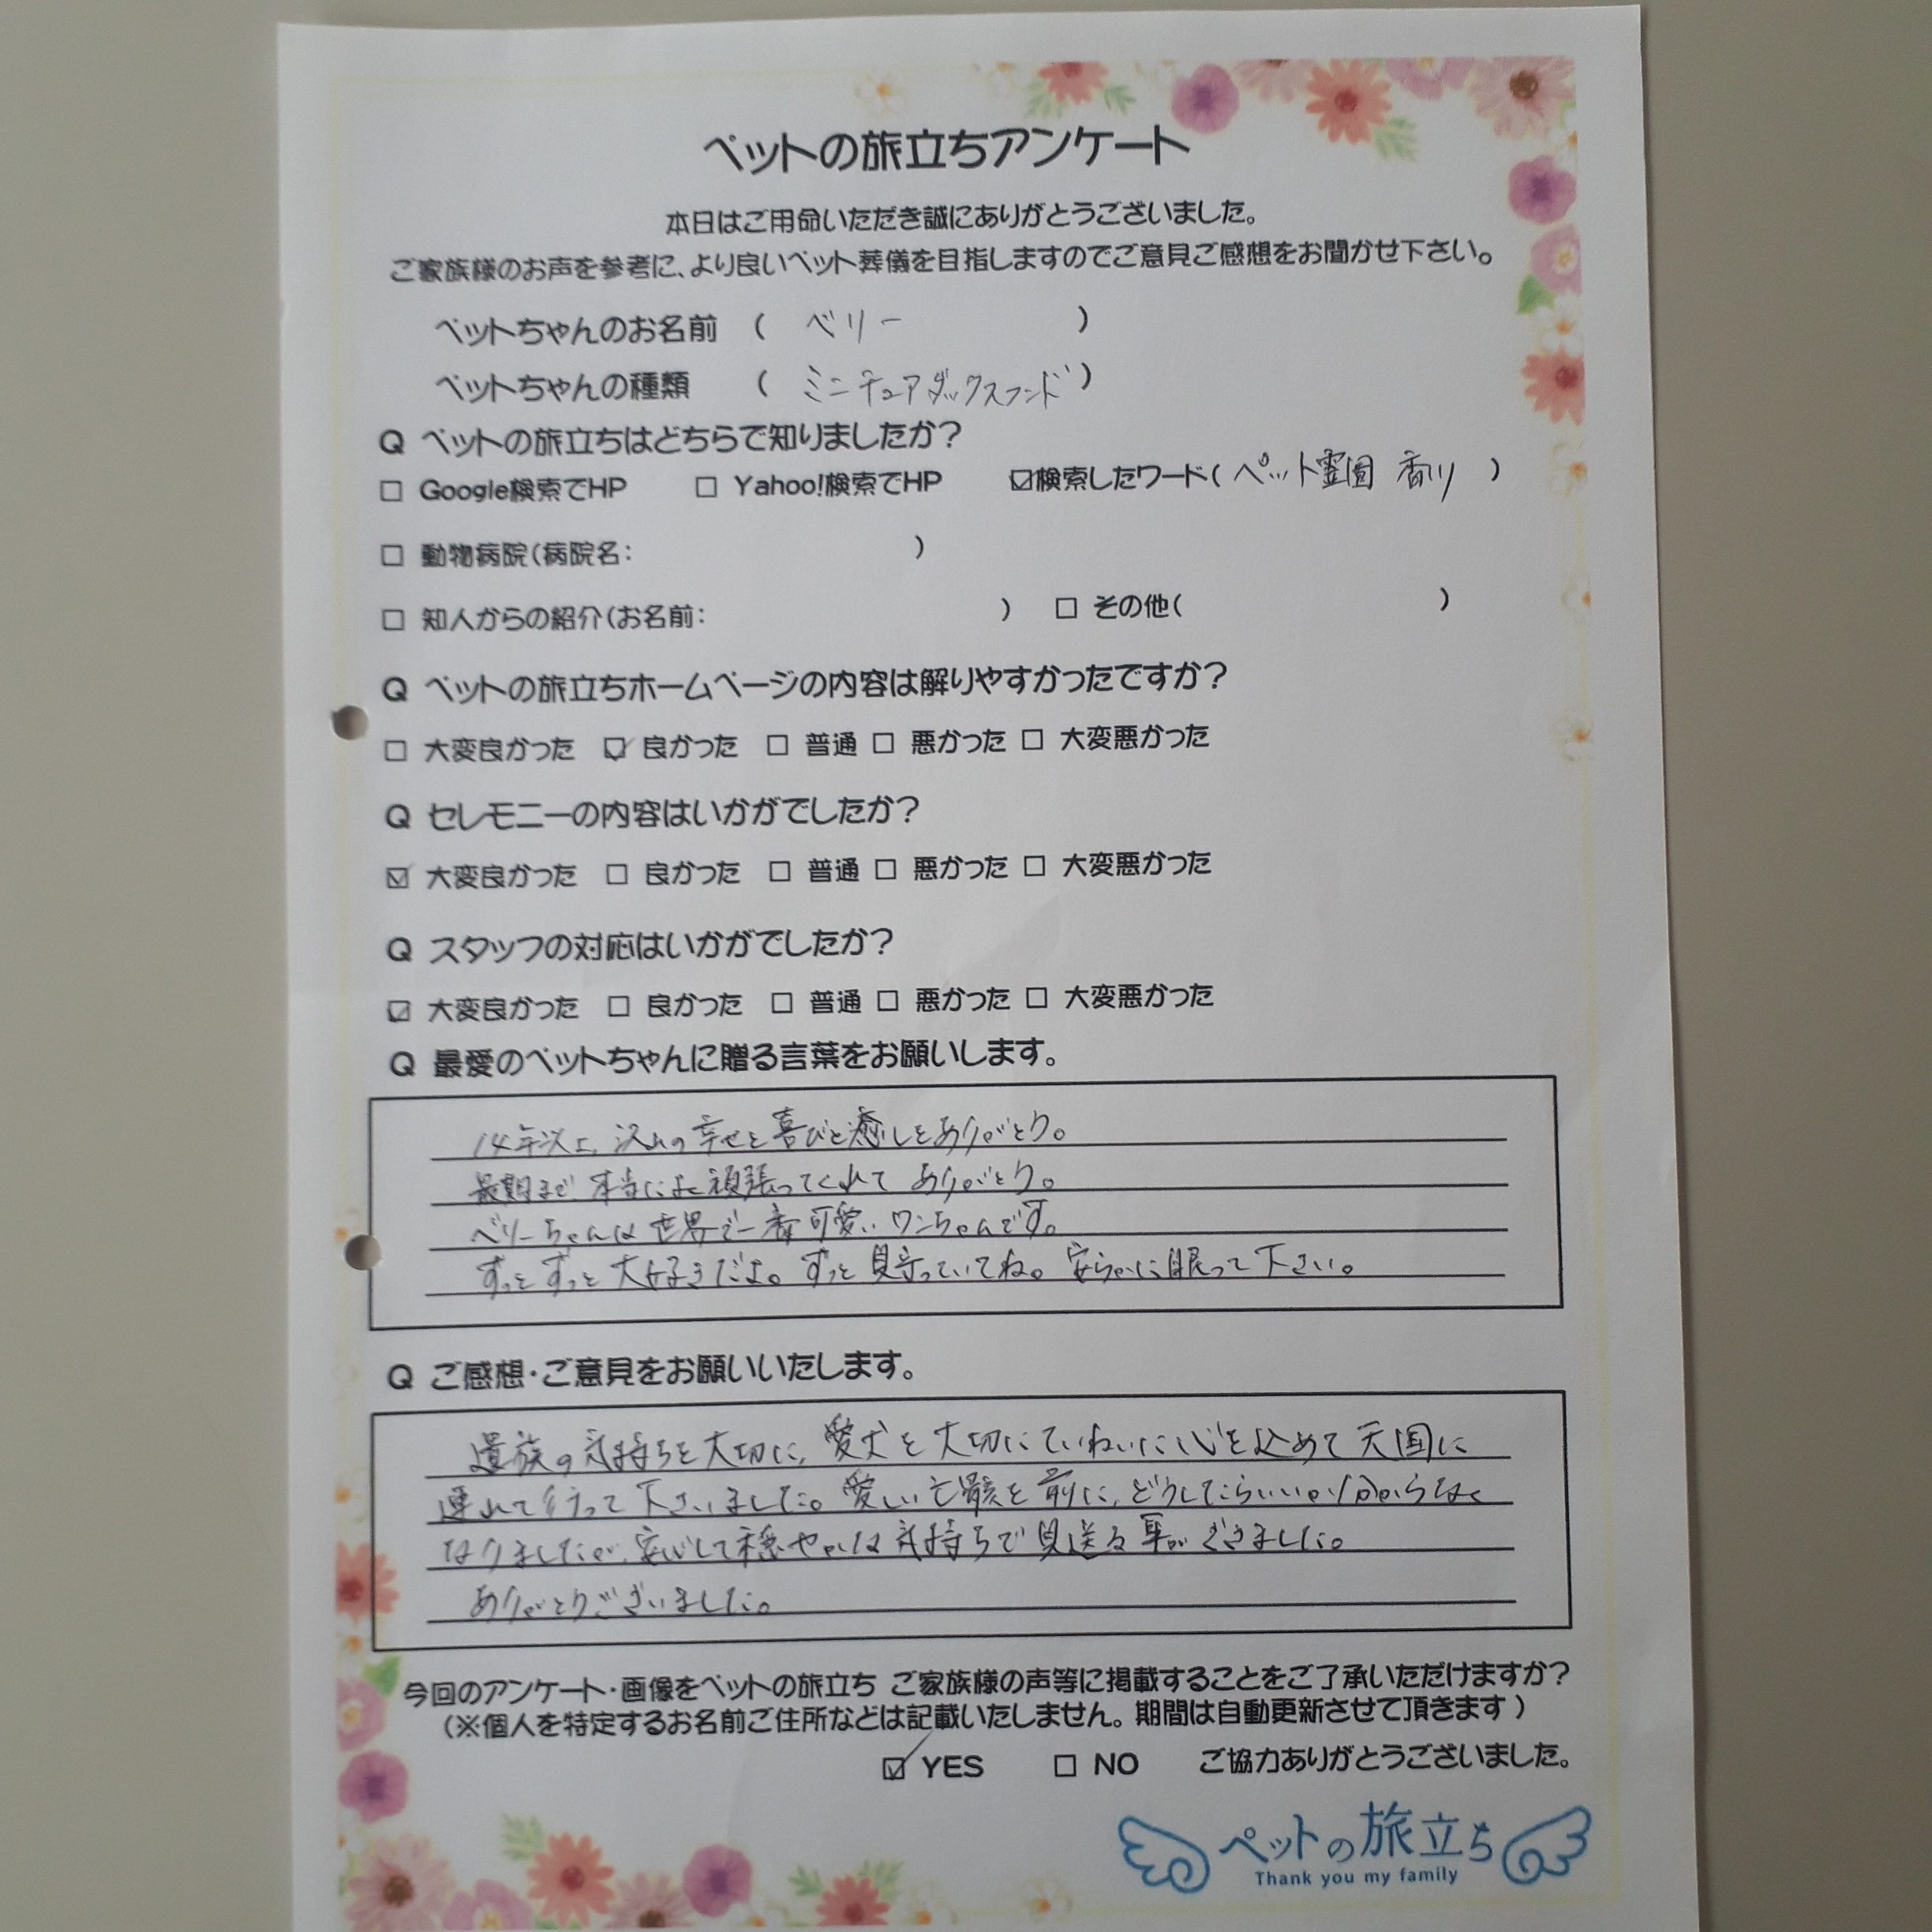 ペットの旅立ちアンケート
本日はご用命いただき誠にありがとうございました。
ご家族様のお声を参考に、より良いペット葬儀を目指しますのでご意見ご感想をお聞かせ下さい。
ペットちゃんのお名前 ( ベリー )
ペットちゃんの種類 ( ミニチュアダックスフンド )
Q ペットの旅立ちはどちらで知りましたか?
□ Google検索でHP □ Yahoo!検索でHP ☑検索したワード( ペット霊園 香川 )
□ 動物病院(病院名: )
□ 知人からの紹介(お名前: ) □ その他( )
Q ペットの旅立ちホームページの内容は解りやすかったですか?
□ 大変良かった ☑ 良かった □ 普通 □ 悪かった □ 大変悪かった
Q セレモニーの内容はいかがでしたか?
☑ 大変良かった □ 良かった □ 普通 □ 悪かった □ 大変悪かった
Q スタッフの対応はいかがでしたか?
☑ 大変良かった □ 良かった □ 普通 □ 悪かった □ 大変悪かった
Q 最愛のペットちゃんに贈る言葉をお願いします。
14年以上、沢山の幸せと喜びと癒しをありがとう。
最期まで本当によく頑張ってくれてありがとう。
ベリーちゃんは世界で一番可愛いワンちゃんです。
ずっとずっと大好きだよ。ずっと見守っていてね。安らかに眠って下さい。
Q ご感想・ご意見をお願いいたします。
遺族の気持ちを大切に、愛犬を大切にていねいに心を込めて天国に
連れて行って下さいました。愛しい亡骸を前に、どうしたらいいか分からなく
なりましたが、安心して穏やかな気持ちで見送る事ができました。
ありがとうございました。
今回のアンケート・画像をペットの旅立ち ご家族様の声等に掲載することをご了承いただけますか?
(※個人を特定するお名前ご住所などは記載いたしません。期間は自動更新させて頂きます)
☑ YES □ NO ご協力ありがとうございました。
ペットの旅立ち
Thank you my family